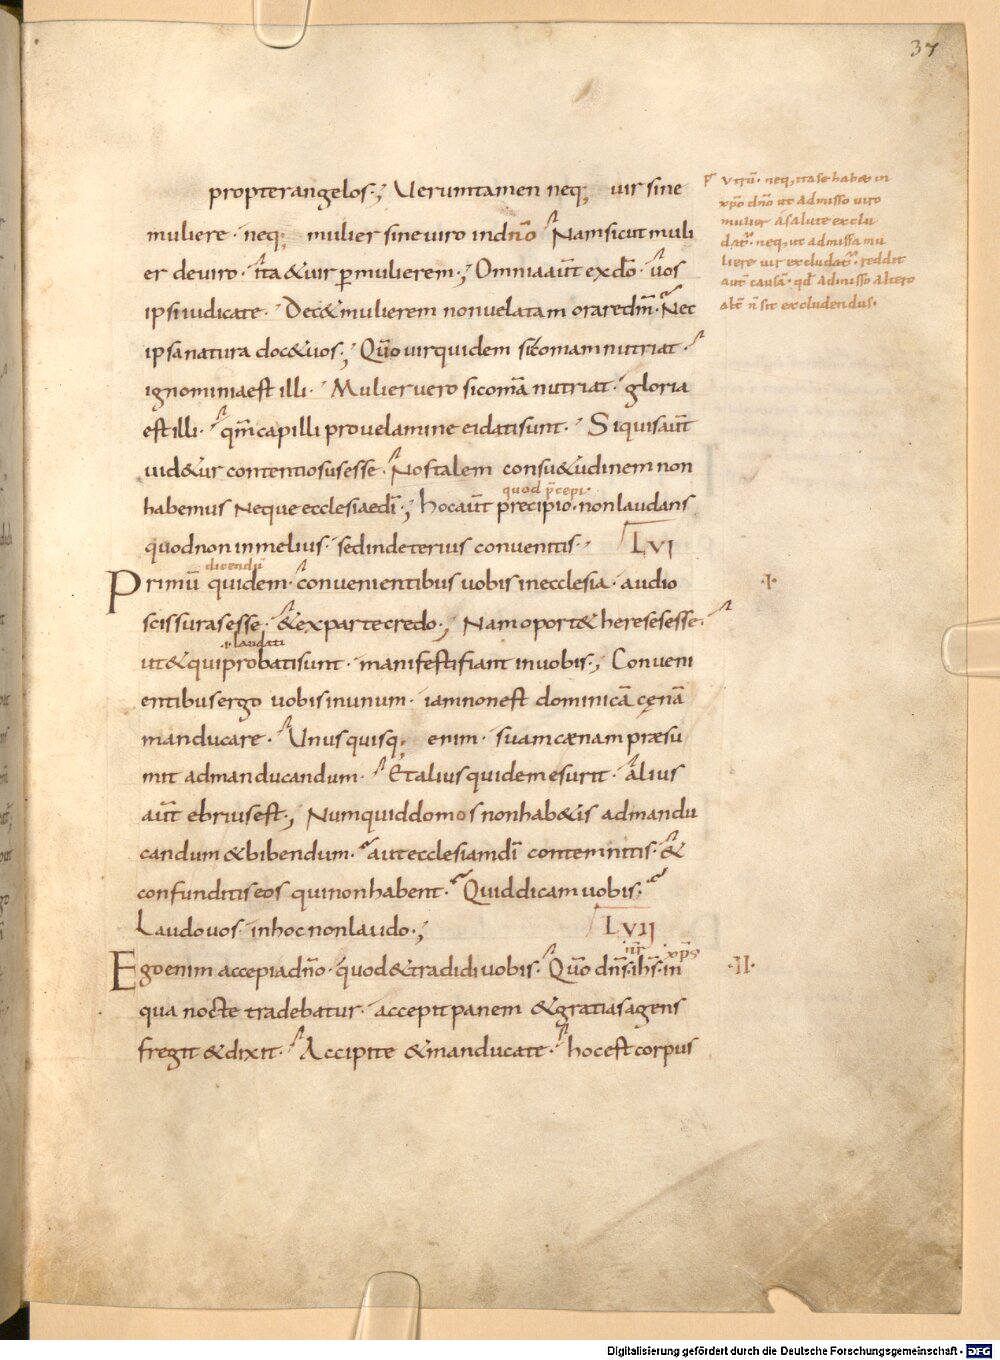 37
propter angelos·; Ueruntamen neq; uir sine
muliere· neq; mulier sine uiro in dño· Nam sicut muli
er de uiro· ita & uir p mulierem·; Omnia aũt ex dõ· uos
ipsi iudicate· Dec& mulierem non uelatam orare dm̃· Nec
ipsa natura doc& uos·; Quõ uir quidem si comam nutriat·
ignominia est illi· Mulier uero si comã nutriat· gloria
est illi· qm̃ capilli pro uelamine ei dati sunt· Si quis aũt
uid&ur contentiosus esse· Nos talem consu&udinem non
habemus Neque ecclesiae dĩ·; hoc aũt precipio· non laudans
quod p̃cepi·
quod non in melius· sed in deterius conuenitis· LVI
Primũ quidem· conuenientibus uobis in ecclesia· audio
dicendũ
·I·
scissuras esse· & ex parte credo·; Nam oport& hereses esse·
ut & qui probati sunt· manifesti fiant in uobis·; Conueni
·i· laudati
entibus ergo uobis in unum· iam non est dominicã cęnã
manducare· Unusquisq; enim· suam cænam præsu
mit ad manducandum· Et alius quidem esurit· alius
aũt ebrius est·; Numquid domos non hab&is ad mandu
candum & bibendum· aut ecclesiam dĩ contemnitis· &
confunditis eos qui non habent· Quid dicam uobis·
Laudo uos· in hoc non laudo·; LVII
Ego enim accepi a dño· quod & tradidi uobis· Quõ dñs ihs̃· in
nr̃ xp̃s
·II·
qua nocte tradebatur· accepit panem & gratias agens
fregit & dixit· Accipite & manducate· hoc est corpus
neq, ita se habet in
xpõ dño ut admisso uiro
mulier a salute exclu
dat̃· neq, ut admissa mu
liere uir excludat̃· reddit
aut̃ causã· qđ admisso altero
alt̃ ñ sit excludendus·
Digitalisierung gefördert durch die Deutsche Forschungsgemeinschaft - DFG